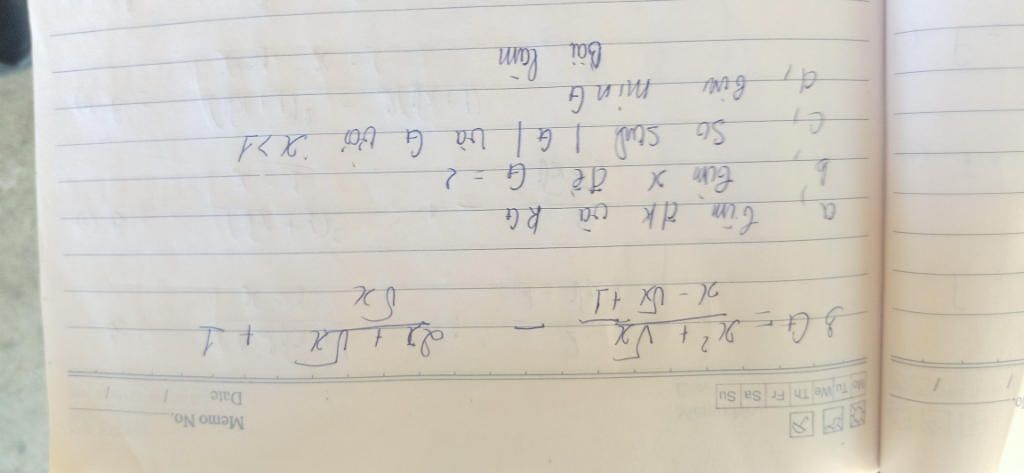 Memo No.
Mo Tu We Th Fr Sa Su
Date / /
3 G = \frac{x² + √x}{x - √x + 1} - \frac{2x + √x}{√x} + 1
a, tìm đk và RG
b, tìm x để G = 2
c, So sánh |G| và G với x > 1
d, tìm min G
Bài làm